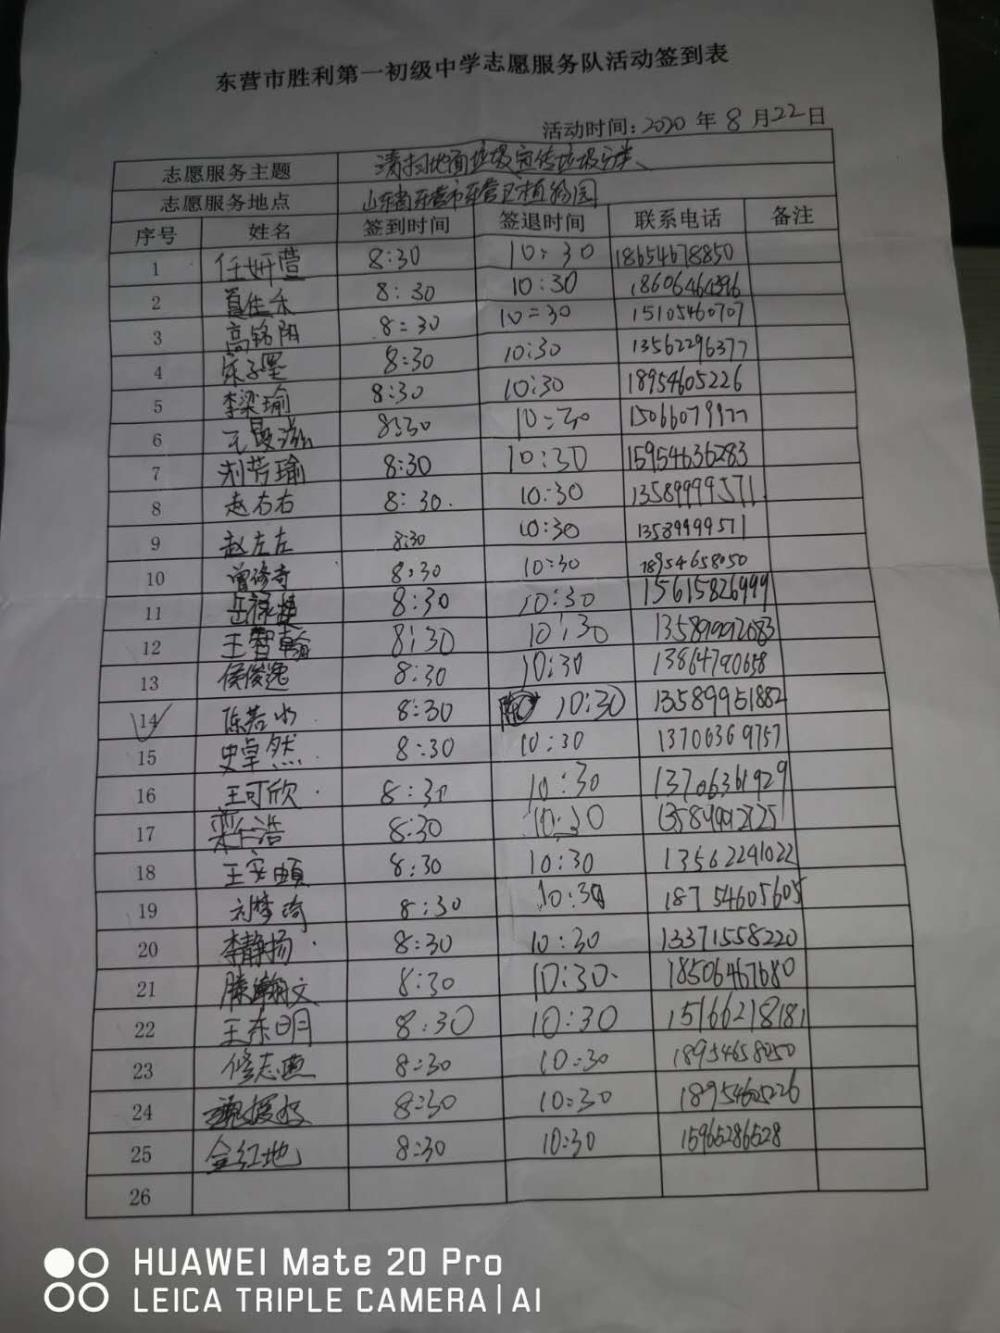 东营市胜利第一初级中学志愿服务队活动签到表
活动时间: 2020 年 8 月 22 日
志愿服务主题 清扫地面垃圾宣传垃圾分类
志愿服务地点 山东省东营市东营区植物园
序号 姓名 签到时间 签退时间 联系电话 备注
1 任妍萱 8:30 10:30 18654678850
2 佳禾 8:30 10:30 18606464396
3 高铭阳 8:30 10:30 15105460707
4 宋子墨 8:30 10:30 13562296377
5 李梁瑜 8:30 10:30 18954605226
6 8:30 10:30 15066079977
7 刘芳瑜 8:30 10:30 15954636283
8 赵右右 8:30. 10:30 13589999571
9 赵左左 8:30 10:30 13589999571
10 曾修奇 8:30 10:30 18954658050
11 8:30 10:30 15615826999
12 王智翰 8:30 10:30 13589992083
13 侯俊逸 8:30 10:30 13864790658
14 陈若水. 8:30 10:30 13589951882
15 史卓然 8:30 10:30 13706369757
16 王可欣. 8:30 10:30 13706361929
17 栾仁浩 8:30 10:30 13589992125
18 王安頔 8:30 10:30 13562291022
19 刘梦琦 8:30 10:30 18754605605
20 李静扬. 8:30 10:30 13371558220
21 滕瀚文 8:30 10:30. 18506467680
22 王东明 8:30 10:30 15166218181
23 修志 8:30 10:30 18954658050
24 8:30 10:30 18954605226
25 金红地 8:30 10:30 15965286528
26
HUAWEI Mate 20 Pro
LEICA TRIPLE CAMERA | AI